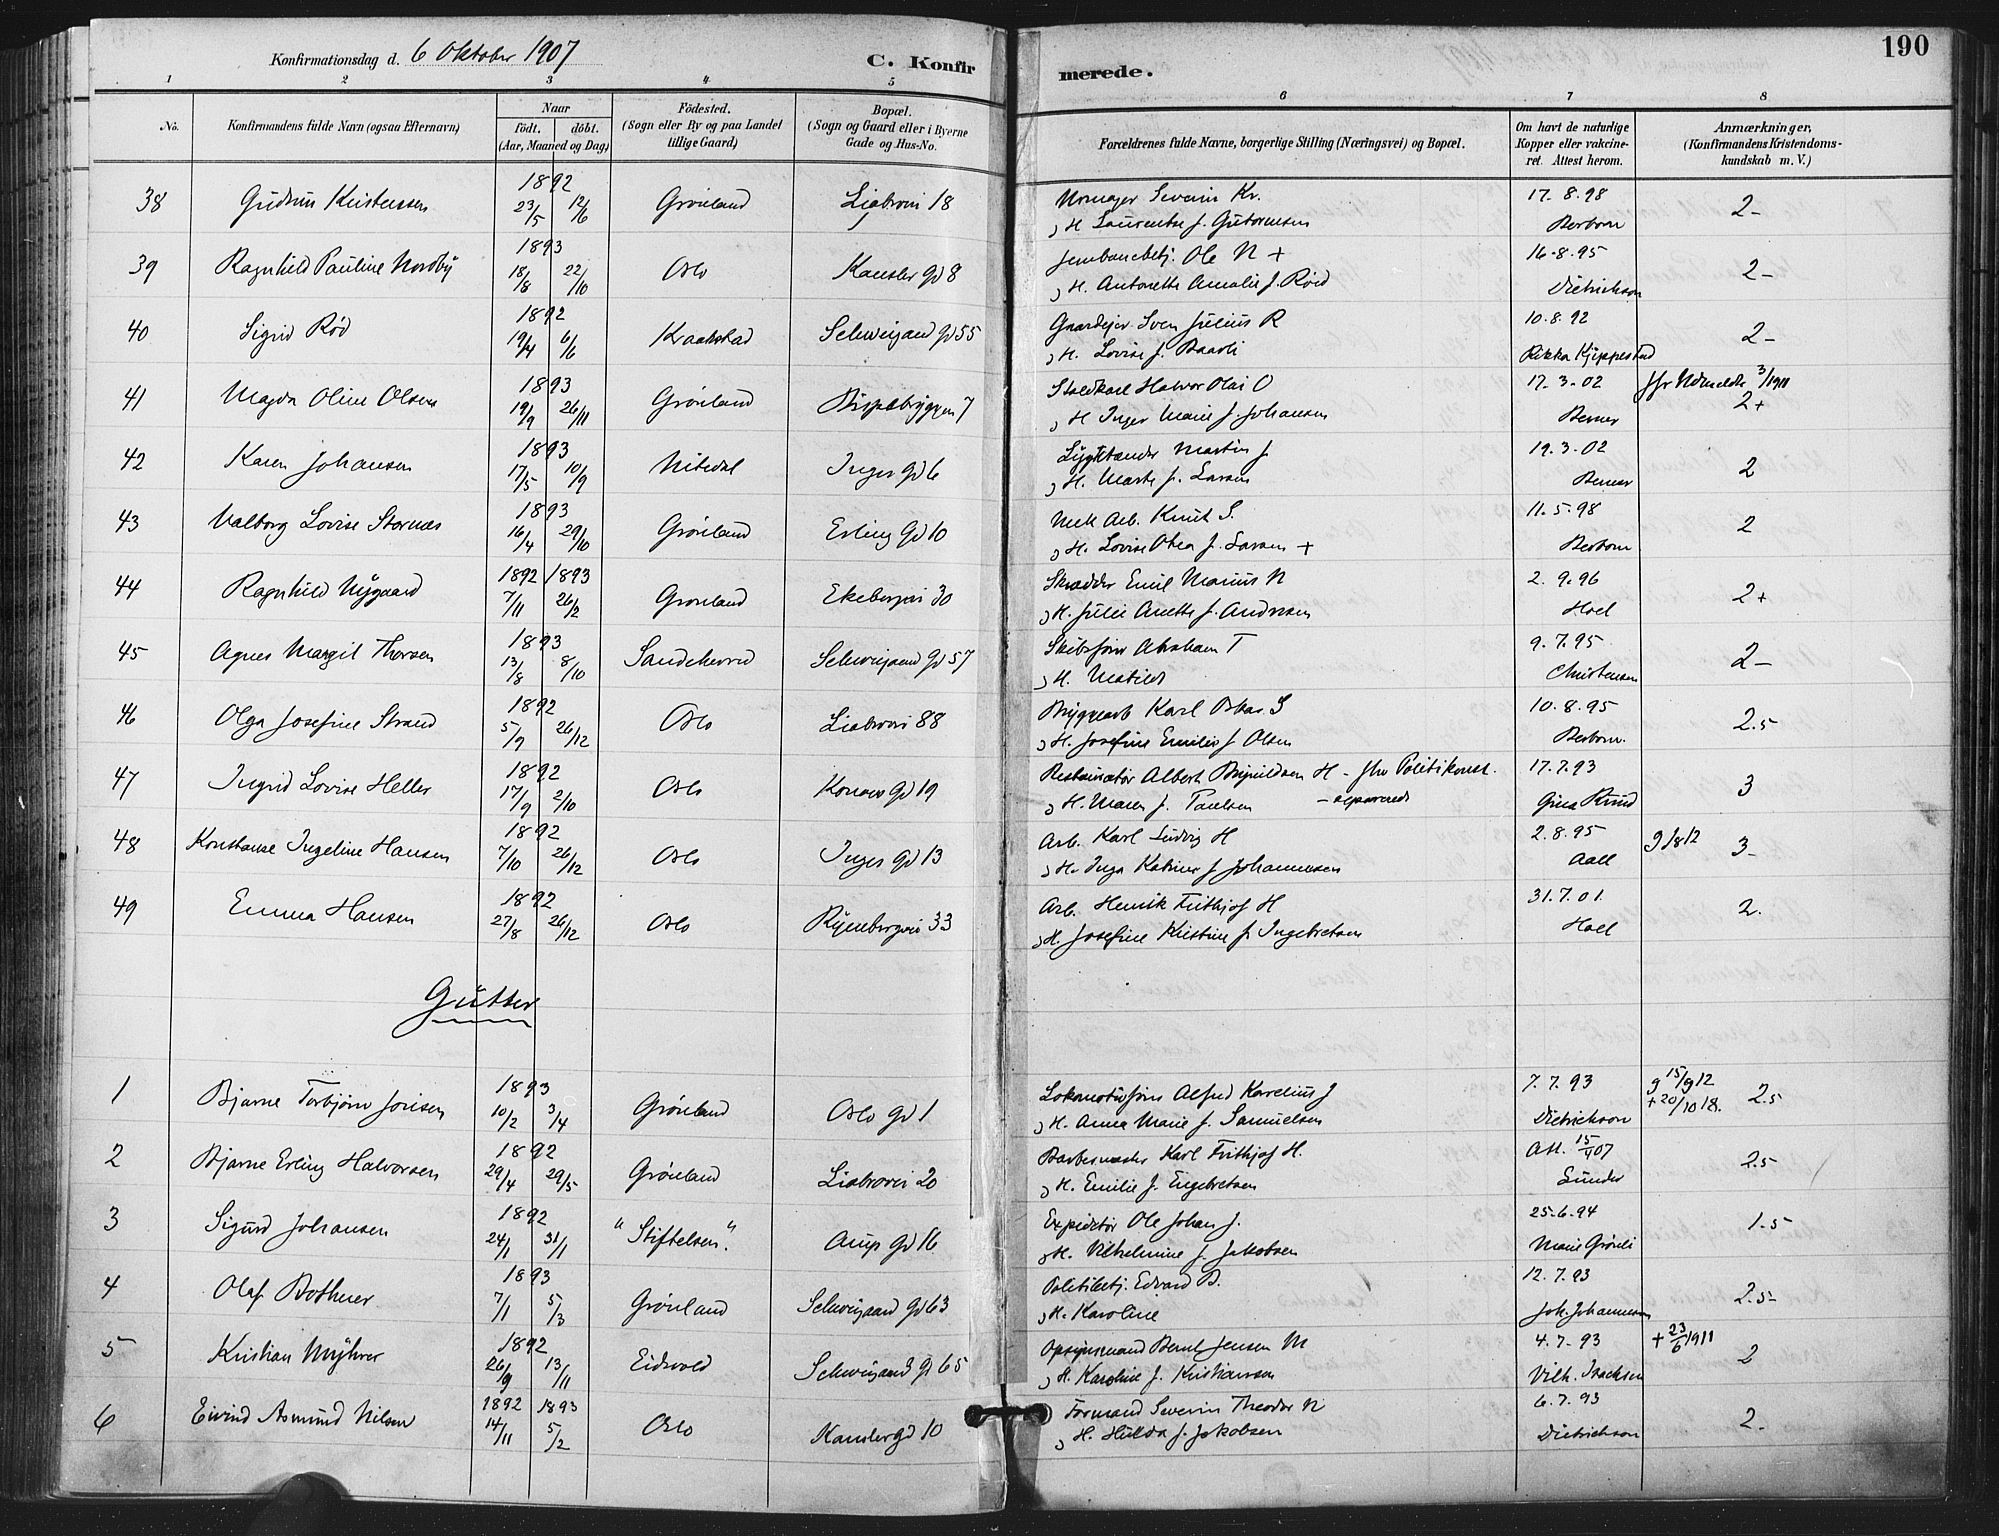 190
Konfirmationsdag d. 6 Oktober 1907
C. Konfirmerede.
1 2 3 4 5 6 7 8
No.
Konfirmandens fulde Navn (ogsaa Efternavn)
Naar
födt. döbt.
(Aar, Maaned og Dag)
Födested.
(Sogn eller By og paa Landet
tillige Gaard)
Bopæl.
(Sogn og Gaard eller i Byerne
Gade og Hus-No.
Forældrenes fulde Navne, borgerlige Stilling (Næringsvei) og Bopæl.
Om havt de naturlige
Kopper eller vakcine-
ret. Attest herom.
Anmærkninger,
(Konfirmandens Kristendoms-
kundskab m. V.)
38 Gudrun Kristensen 1892 23/5 12/6 Grönland Liabrovei 18
Severin Kr. 17.8.98
H. Laurentse f. Gutormsen Berbom 2-
39 Ragnhild Pauline Nordby 1893 18/8 22/10 Oslo Kansler gd 8
Jernbanebetj. Ole N + 16-8.95
H. Antonette Amalie f. Röid Dietrichson 2-
40 Sigrid Röd 1892 19/4 6/6 Kraakstad Schweigaard gd 55
Gaardejer Sven Julius R 10.8.92
H. Lovise f. Rikka Kjeppestad 2-
41 Magda Oline Olsen 1893 19/9 26/11 Grönland Bispebryggen 7
Staldkarl Halvor Olai O 17.3-02 3/1911
H Inger Marie f. Johansen Berner 2+
42 Karen Johansen 1893 17/5 10/9 Nitedal Inges gd 6
Lygttænder Martin J 19.3.02
H. Marte f. Larsen Berner 2
43 Valborg Lovise Stornæs 1893 16/4 29/10 Grönland Erling gd 10
Mek Arb. Knut S. 11.5-98
H. Lovise Othea f. Larsen + Berbom 2
44 Ragnhild Nygaard 1892 1893 7/11 26/2 Grönland Ekebergvei 30
Skrædder Emil Marius N 2.9.96
H. Julie Anette f. Andresen Hoel 2+
45 Agnes Margit Thorsen 1893 13/8 8/10 Sandeherred Schweigaard gd 57
Skibsförer Abraham T 9.7.95
H. Matilde Christensen 2-
46 Olga Josefine Strand 1892 5/9 26/12 Oslo Liabrovei 88
Bryggearb Karl Oskar S 10.8.95
H. Josefine Emilie f Olsen Berbom. 2.5
47 Ingrid Lovise Heller 1892 17/9 2/10 Oslo Konows gd 19
Restauratör Albert Brynildsen H - fhv Politikonst. 17.7.93
H. Maren f. Paulsen - separerede Gina Ruud 3
48 Konstanse Ingeline Hansen 1892 7/10 26/12 Oslo Inges gd 13
Arb. Karl Ludvig H 2.8.95
H. Inga Katrine f Johannesen Aall 3-
49 Emma Hansen 1892 27/8 26/12 Oslo Ryenbergvei 33
Arb. Henrik Frithjof H 31.7.01.
H. Josefine Kristine f. Ingebretsen Hoel 2.
Gutter
1 Bjarne Torbjörn Jonsen 1893 10/2 3/4 Grönland Oslo gd 1
Lokomotivförer Alfred Karelius J 7.7.93 g 15/9 12
H. Anna Marie f. Samuelsen Dietrichson + 20/10 18. 2.5
2 Bjarne Erling Halvorsen 1892 29/4 29/5 Grönland Liabrovei 20
Barbermester Karl Frithjof H. Att. 07
H. Emilie f. Engebretsen Sunder 2.5
3 Sigurd Johansen 1892 24/1 31/1 "Stiftelsen". Arups gd 16
Expeditör Ole Johan J. 25-6.94
H. Vilhelmine f. Jakobsen Marie Grönli 1.5
4 Olaf Bothner 1893 7/1 5/3 Grönland Schweigaard gd 63
Politibetj. Edvard B. 12.7.93
H. Karoline Joh. Johannesen 2.5-
5 Kristian Myhrer 1892 26/9 13/11 Eidsvold Schweigaard gd 65
Opsynsmand Bernt Jensen M 4.7-93 + 23/6 1911
H. Karoline f. Kristiansen Vilh. Isachsen 2
6 Eivind Asmund Nilsen 1892 1893 14/11 5/2 Oslo Kanslergd 10
Formand Severin Theodor N 6.7.93
H. Hulda f. Jakobsen Dietrichson 2-